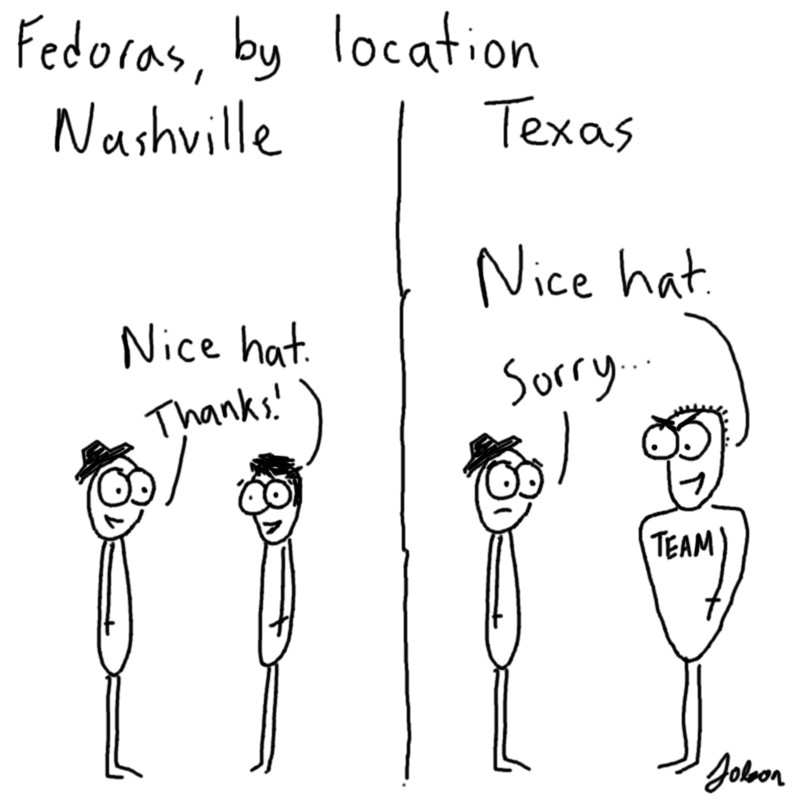 Fedoras, by location
Nashville
Nice hat.
Thanks!
Texas
Nice hat.
Sorry...
TEAM